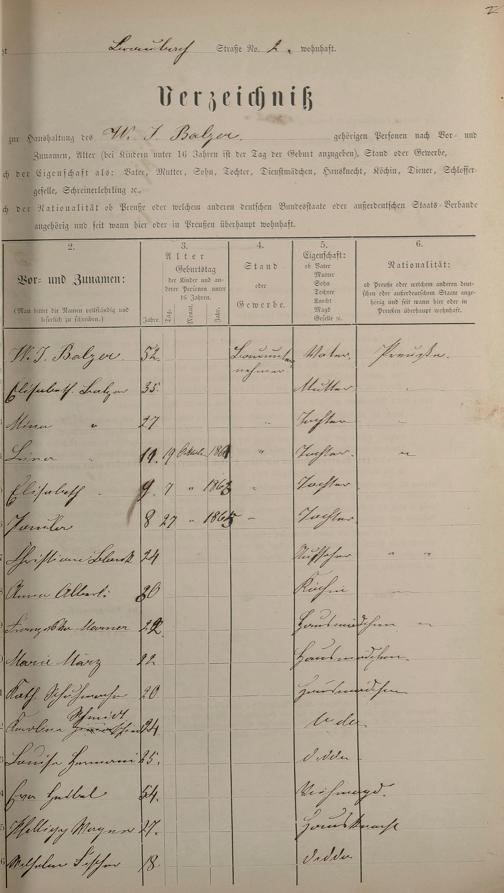 2
Straße No. 2. wohnhaft.
Verzeichniß
zur Haushaltung des W. J. Balzer. gehörigen Personen nach Vor- und
Zunamen, Alter (bei Kindern unter 16 Jahren ist der Tag der Geburt anzugeben), Stand oder Gewerbe,
ch der Eigenschaft als: Vater, Mutter, Sohn, Tochter, Dienstmädchen, Hausknecht, Köchin, Diener, Schlosser-
geselle, Schreinerlehrling ꝛc.
ch der Nationalität ob Preuße oder welchem anderen deutschen Bundesstaate oder außerdeutschen Staats-Verbande
angehörig und seit wann hier oder in Preußen überhaupt wohnhaft.
2.
Vor- und Zunamen:
(Man bittet die Namen vollständig und
leserlich zu schreiben.)
3.
Alter
Jahre.
Geburtstag
der Kinder und an-
derer Personen unter
16 Jahren.
Tag.
Monat.
Jahr.
4.
Stand
oder
Gewerbe.
5.
Eigenschaft:
ob Vater
Mutter
Sohn
Tochter
Knecht
Magd
Geselle ꝛc.
6.
Nationalität:
ob Preuße oder welchem anderen deut-
schen oder außerdeutschen Staate ange-
hörig und seit wann hier oder in
Preußen überhaupt wohnhaft.
W. J. Balzer. 52. Vater. Preuße.
Elisabeth Balzer 35. Mutter
Mina " 27 Tochter
Lina " 11. 19 Tochter. "
Elisabeth 9. 7 " 1863 Tochter
8 27 " 1865 Tochter
24 Aufseher " "
Anna Alberti 30 Köchin
22 Hausmädchen "
Marie März 22 Hausmädchen.
Kath. 20 Hausmädchen
Karolina Schmidt 24
Louise Hermani 25. dto
Eva 54. Viehmagd.
Phillipp Wagner 27. Hausknecht
Wilhelm Fischer 18. dto